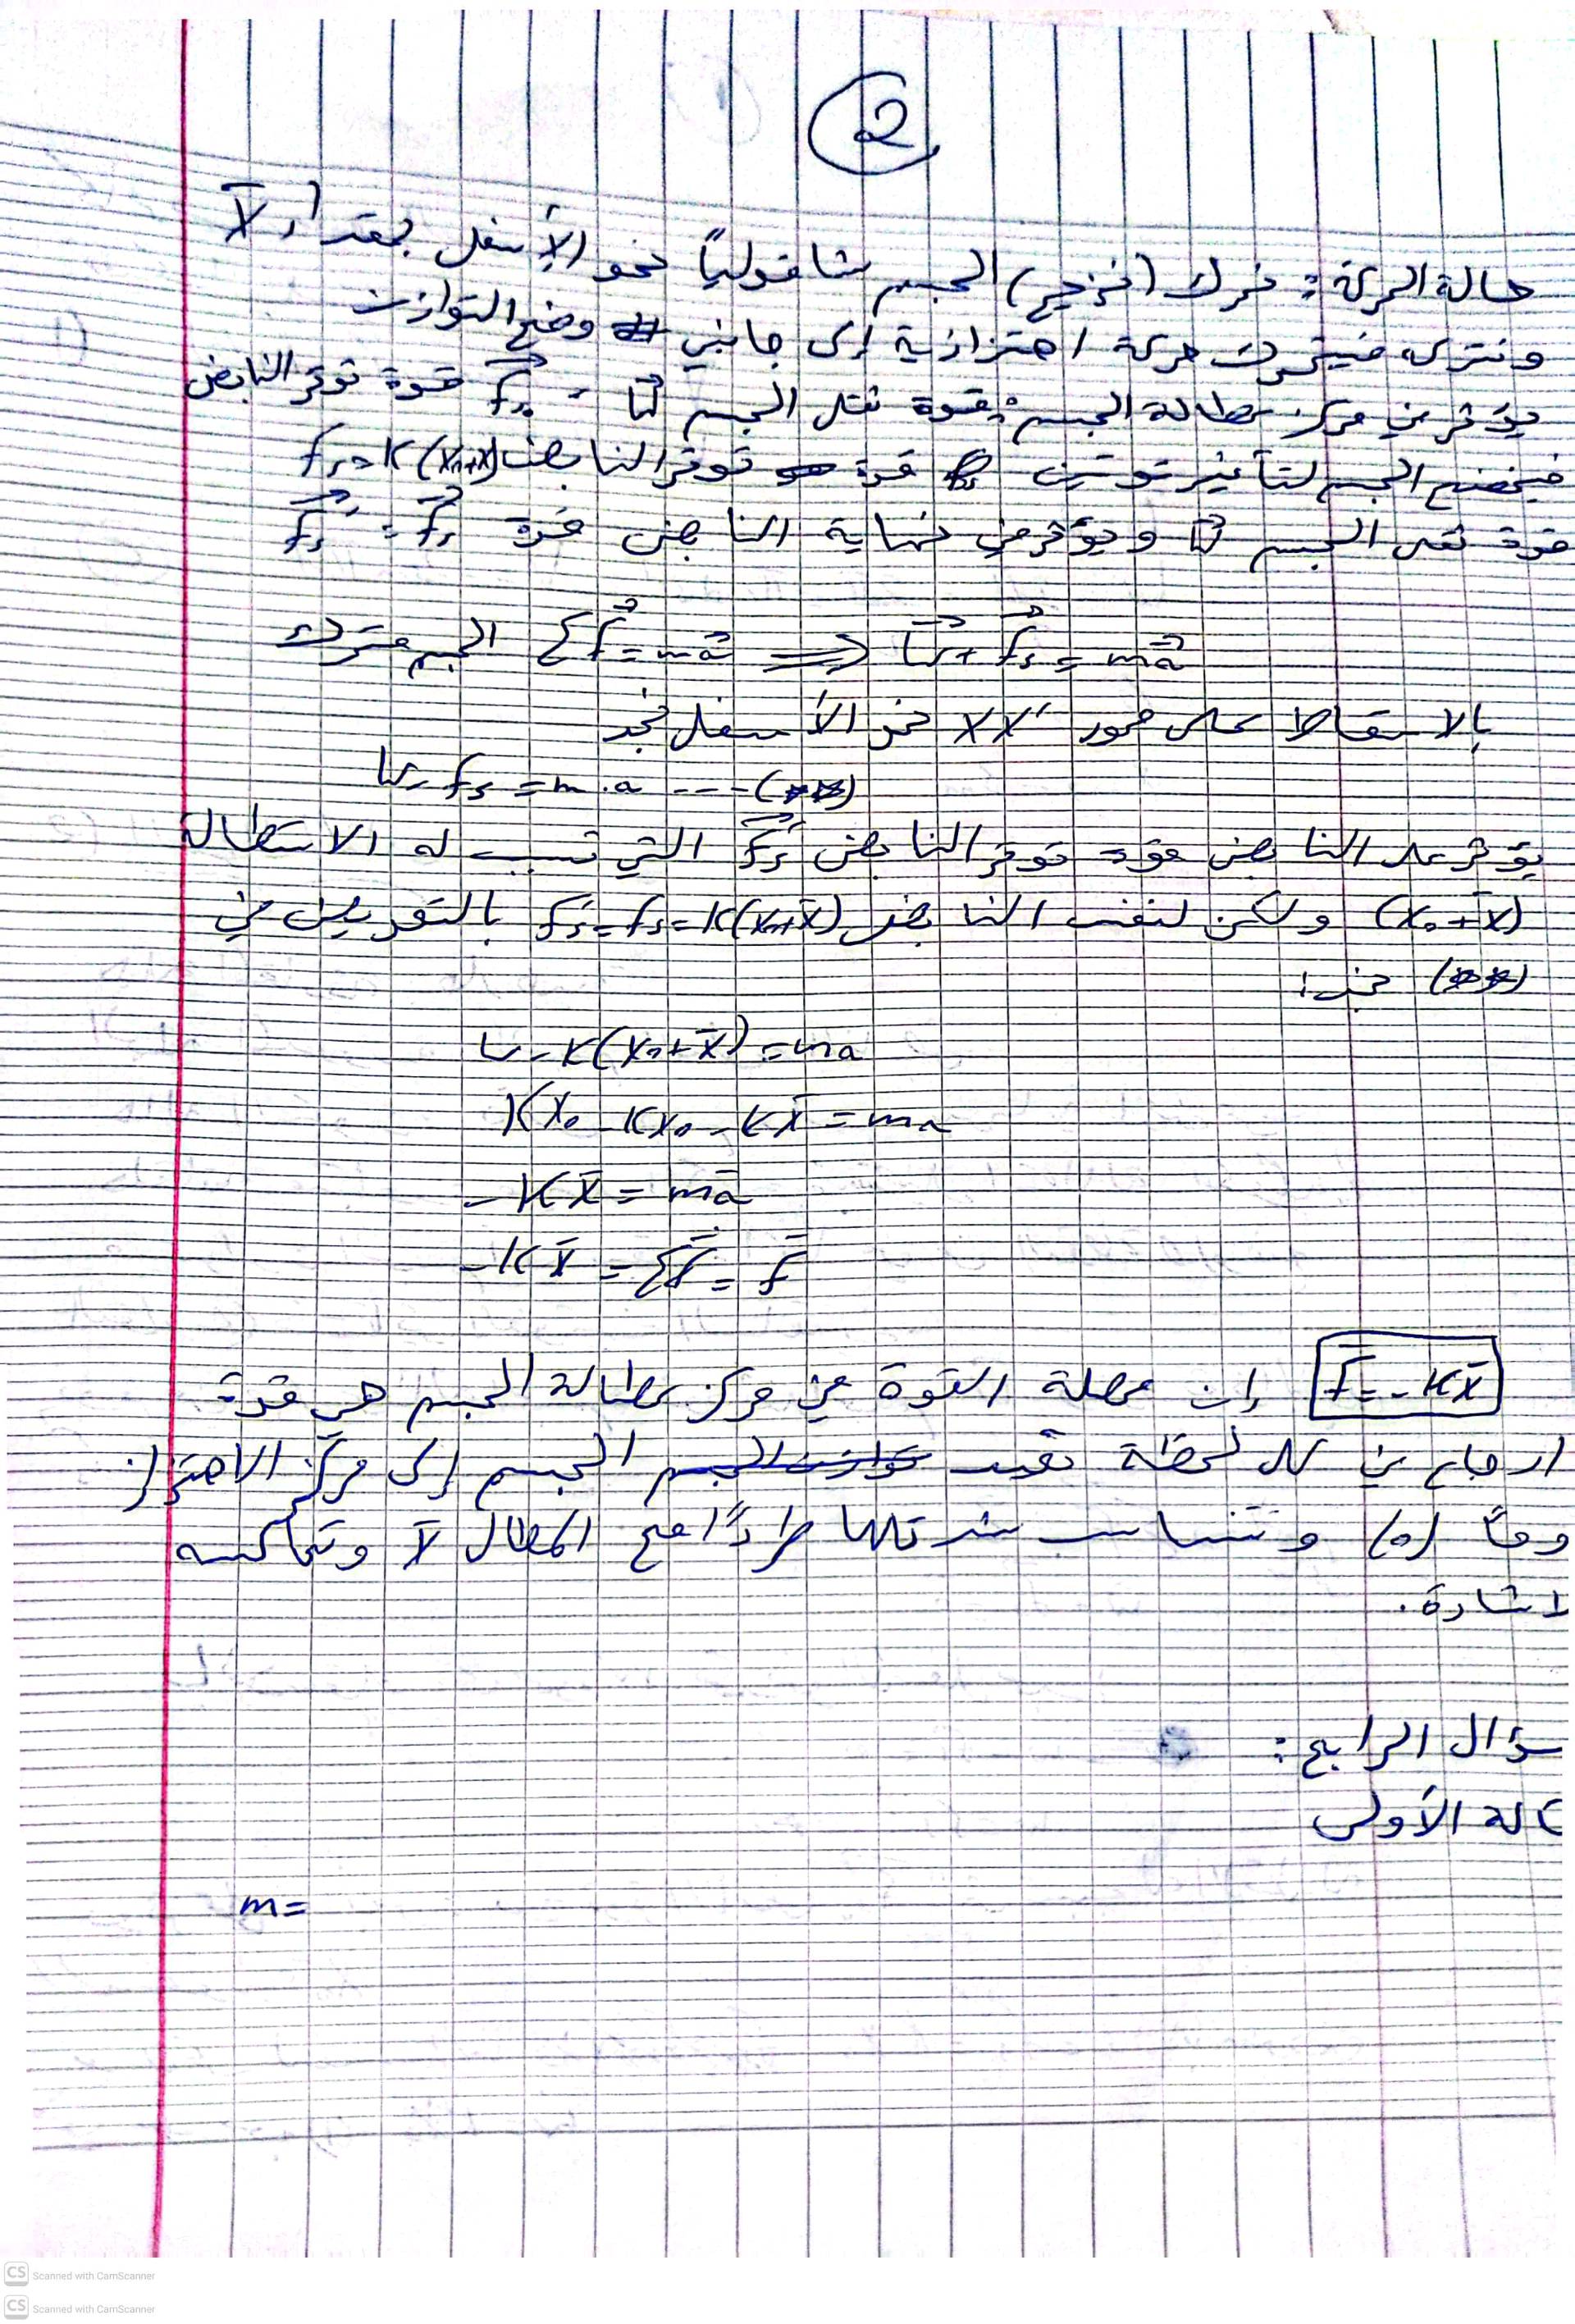 2
حالة الحركة: نحرك (نزيح) الجسم شاقولياً نحو الأسفل بمقدار x̄
ونتركه فيتحرك حركة اهتزازية إلى جانبي وضع التوازن
يؤثر في مركز عطالة الجسم: قوة ثقل الجسم w⃗ - قوة توتر النابض
فيخضع الجسم لتأثير قوتين قوة توتر النابض Fs = K(x₀+x̄)
قوة ثقل الجسم w⃗ ويؤثر في نهاية النابض قوة
الجسم متحرك ΣF⃗ = ma⃗ ⟹ w⃗ + F⃗s = ma⃗
بالاسقاط على محور xx' نحو الأسفل نجد
w - Fs = m.a ---(**)
يؤثر على النابض قوة توتر النابض F⃗'s التي تسبب له الاستطالة
(x₀+x̄) ولكن لنفس النابض F's = Fs = K(x₀+x̄) بالتعويض في
(**) نجد:
w - K(x₀+x̄) = ma
Kx₀ - Kx₀ - Kx̄ = ma
-Kx̄ = mā
-Kx̄ = ΣF̄ = F̄
F̄ = -Kx̄ إن محصلة القوة في مركز عطالة الجسم هي قوة
ارجاع في كل لحظة تعيد الجسم إلى مركز الاهتزاز
(o) وتتناسب شدتها طرداً مع المطال x̄ وتعاكسه
اشارة.
سؤال الرابع:
الأولى
m=
CS Scanned with CamScanner
CS Scanned with CamScanner